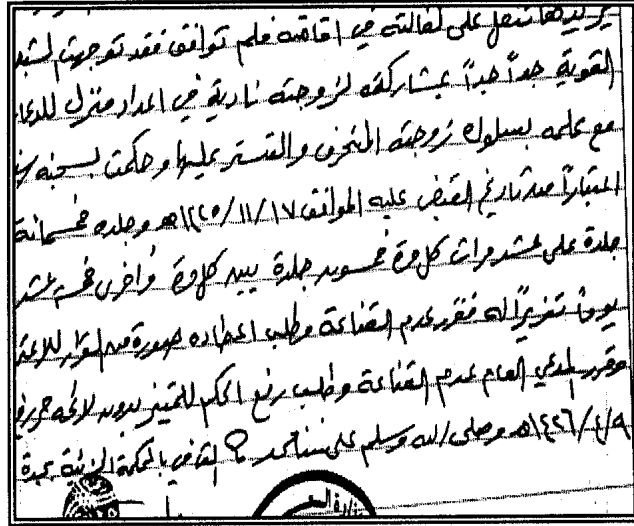 يريدها تنقل على كفالته في اقامته فلم توافق فقد توجهت لشبـ
القوية جداً جداً بمشاركته لزوجته نادية في اعداد منزل للدعا
مع علمه بسلوك زوجته المنحرف والتستر عليها وحكمت بسجنه
اعتباراً من تاريخ القبض عليه الموافق ١٤٢٥/١١/١٧هـ وجلده خمسمائة
جلدة على عشر مرات كل مرة خمسون جلدة بين كل مرة وأخرى خمسة عشر
يوماً تعزيراً له فقرر عدم القناعة وطلب اعطاءه صورة من القرار للاعتر
وقرر المدعي العام عدم القناعة وطلب رفع الحكم للتمييز بدون لائحة حرر في
١٤٢٦/٤/٩هـ وصلى الله وسلم على نبينا محمد القاضي بالمحكمة الجزئية بجدة